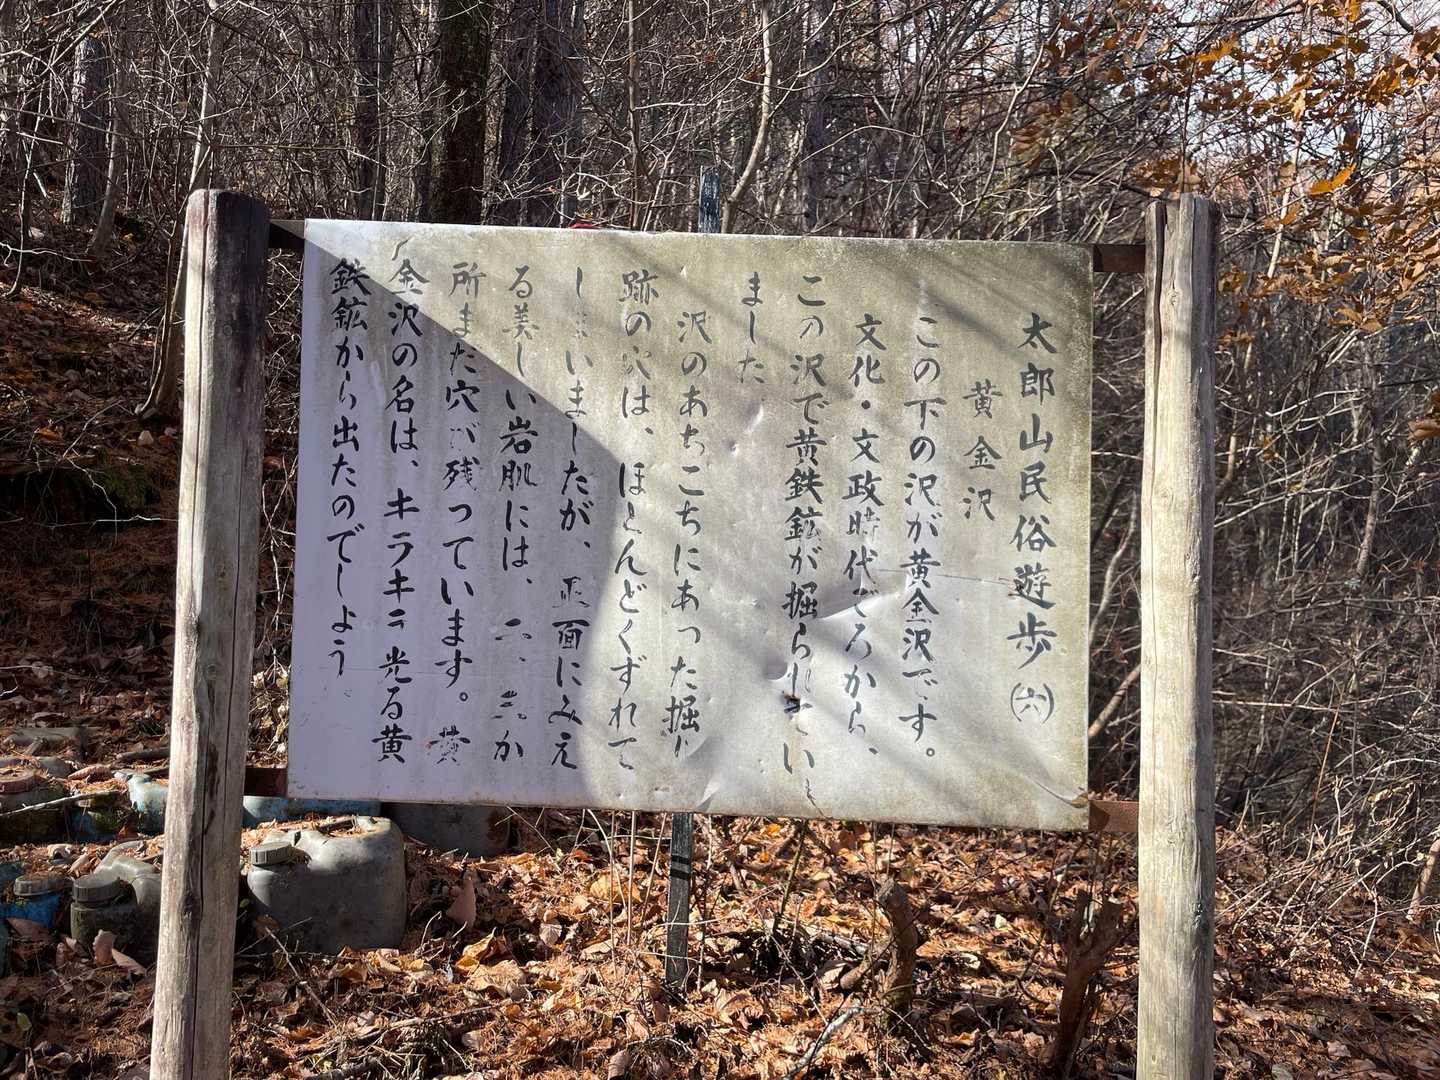 太郎山民俗遊歩㈥
黄金沢
この下の沢が黄金沢です。
文化・文政時代ごろから、
この沢で黄鉄鉱が掘られてい
ました
沢のあちこちにあった掘り
跡の穴は、ほとんどくずれて
しまいましたが、正面にみえ
る美しい岩肌には、二、三か
所まだ穴が残っています。黄
金沢の名は、キラキラ光る黄
鉄鉱から出たのでしょう